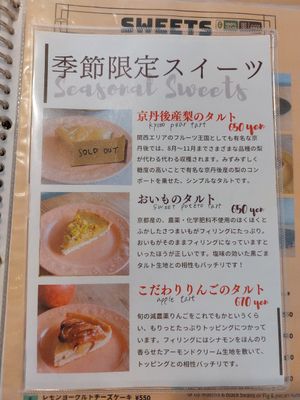 SWEETS
季節限定スイーツ
Seasonal Sweets
京丹後産梨のタルト
kyoto pear tart 650 yen
SOLD OUT
関西エリアのフルーツ王国としても有名な京
丹後では、8月～11月までさまざまな品種の梨
が代わる代わる収穫されます。みずみずしく
糖度の高いことで有名な京丹後産の梨のコン
ポートを乗せた、シンプルなタルトです。
おいものタルト
sweet poteto tart 650 yen
京都産の、農薬・化学肥料不使用のほくほくと
ふかしたさつまいもがフィリングにたっぷり。
おいもがそのままフィリングになっていますと
いったほうが正しいです。塩味の効いた黒ごま
タルト生地との相性もバッチリです！
こだわりりんごのタルト
apple tart 670 yen
旬の減農薬りんごをこれでもかというくら
い、もりっとたっぷりトッピングにつかってい
ます。フィリングにはシナモンをほんのり
香らせたアーモンドクリーム生地を敷いて、
トッピングとの相性バッチリです。
レモンヨーグルトチーズケーキ ¥550